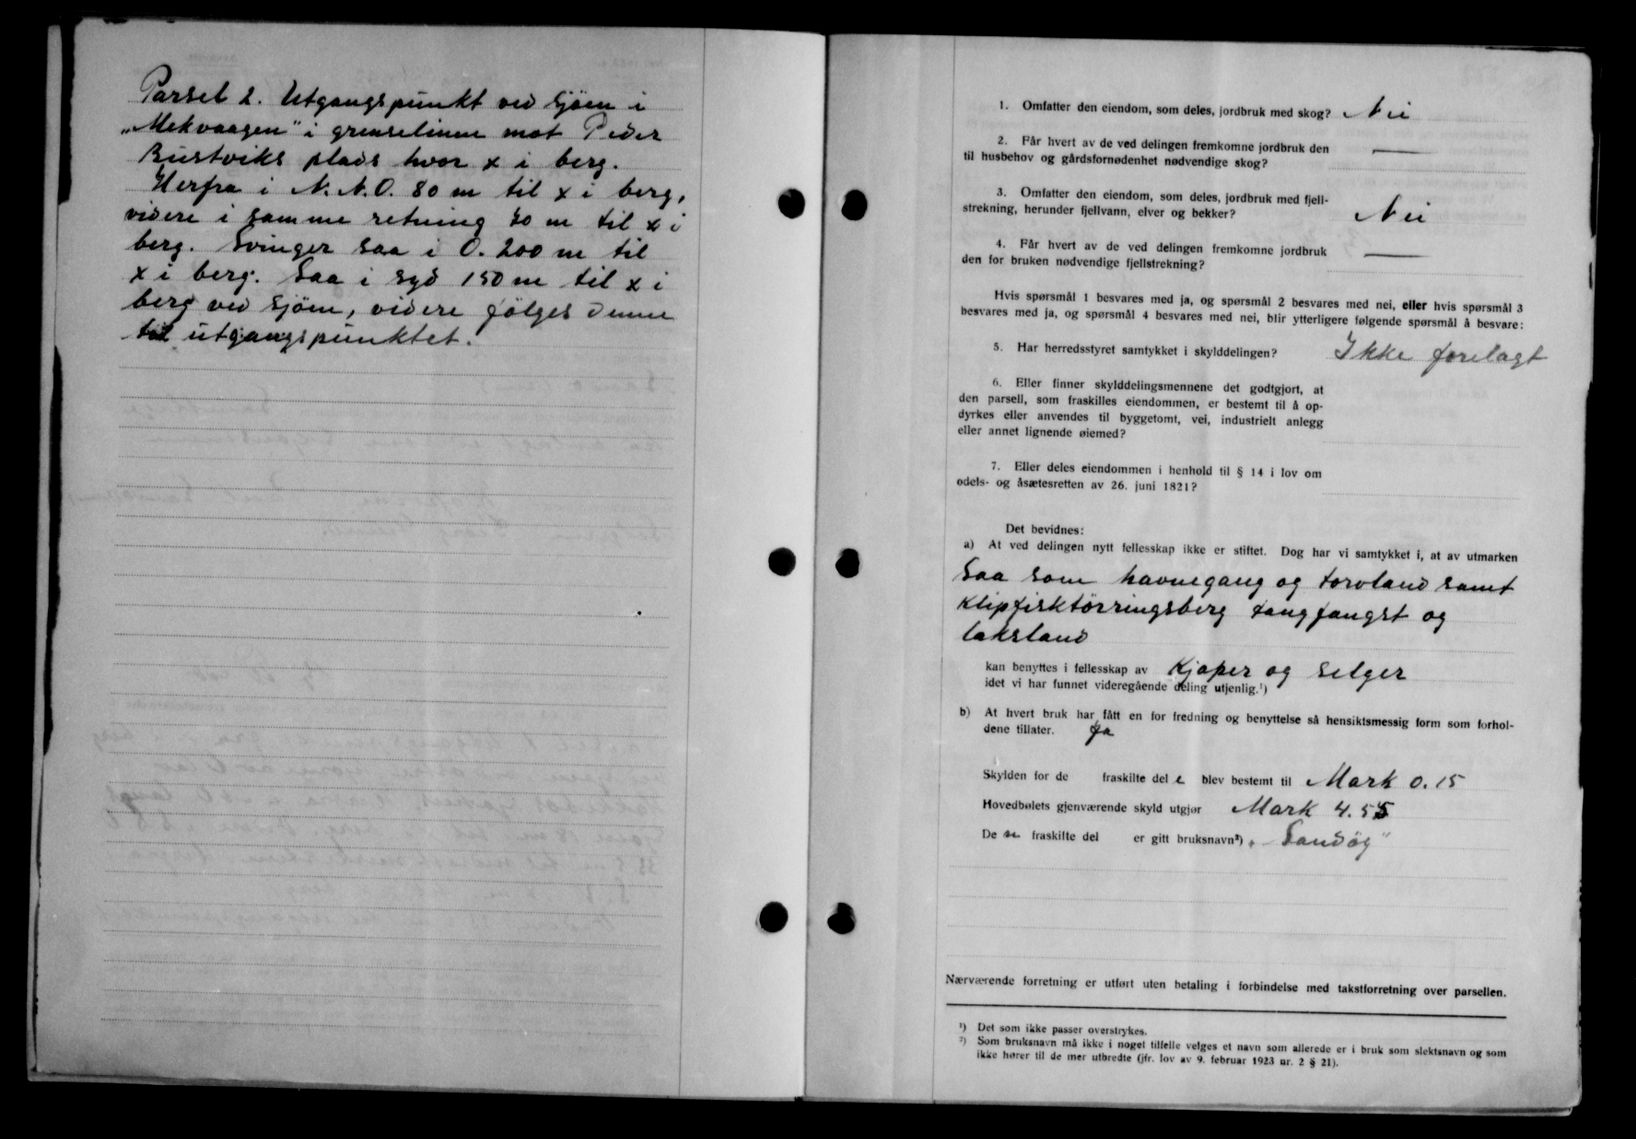 Parsel 2. Utgangspunkt ved Sjöen i
„Mekvaagen" i grenselinne mot Peder
Rustviks plads hvor x i berg.
Herfra i N.N.O. 80 m til x i berg,
videre i samme retning 30 m til x i
berg. Svinger saa i O. 200 m til
x i berg. Saa i syd 150 m til x i
berg ved Sjöen, videre fölges denne
til utgangspunktet.
1. Omfatter den eiendom, som deles, jordbruk med skog? Nei
2. Får hvert av de ved delingen fremkomne jordbruk den
til husbehov og gårdsfornødenhet nødvendige skog? —
3. Omfatter den eiendom, som deles, jordbruk med fjell-
strekning, herunder fjellvann, elver og bekker? Nei
4. Får hvert av de ved delingen fremkomne jordbruk
den for bruken nødvendige fjellstrekning? —
Hvis spørsmål 1 besvares med ja, og spørsmål 2 besvares med nei, eller hvis spørsmål 3
besvares med ja, og spørsmål 4 besvares med nei, blir ytterligere følgende spørsmål å besvare:
5. Har herredsstyret samtykket i skylddelingen? Ikke forelagt
6. Eller finner skylddelingsmennene det godtgjort, at
den parsell, som fraskilles eiendommen, er bestemt til å op-
dyrkes eller anvendes til byggetomt, vei, industrielt anlegg
eller annet lignende øiemed?
7. Eller deles eiendommen i henhold til § 14 i lov om
odels- og åsætesretten av 26. juni 1821?
Det bevidnes:
a) At ved delingen nytt fellesskap ikke er stiftet. Dog har vi samtykket i, at av utmarken
Saa som havnegang og torvland samt
Klipfisktörringsberg tangfangst og
laksland
kan benyttes i fellesskap av Kjøper og selger
idet vi har funnet videregående deling utjenlig.¹)
b) At hvert bruk har fått en for fredning og benyttelse så hensiktsmessig form som forhol-
dene tillater. Ja
Skylden for de fraskilte del e blev bestemt til Mark 0.15
Hovedbølets gjenværende skyld utgjør Mark 4.55
De n fraskilte del er gitt bruksnavn²) „Sandöy"
Nærværende forretning er utført uten betaling i forbindelse med takstforretning over parsellen.
¹) Det som ikke passer overstrykes.
²) Som bruksnavn må ikke i noget tilfelle velges et navn som allerede er i bruk som slektsnavn og som
ikke hører til de mer utbredte (jfr. lov av 9. februar 1923 nr. 2 § 21).